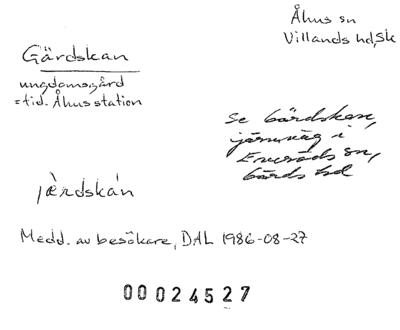 Åhus sn
Villands hd, Sk
Gärdskan
ungdomsgård
= tid. Åhus station
Se Gärdskan,
järnväg i
Everöds sn,
Gärds hd
jæ̀rdskán
Medd. av besökare, DAL 1986-08-27
00024527